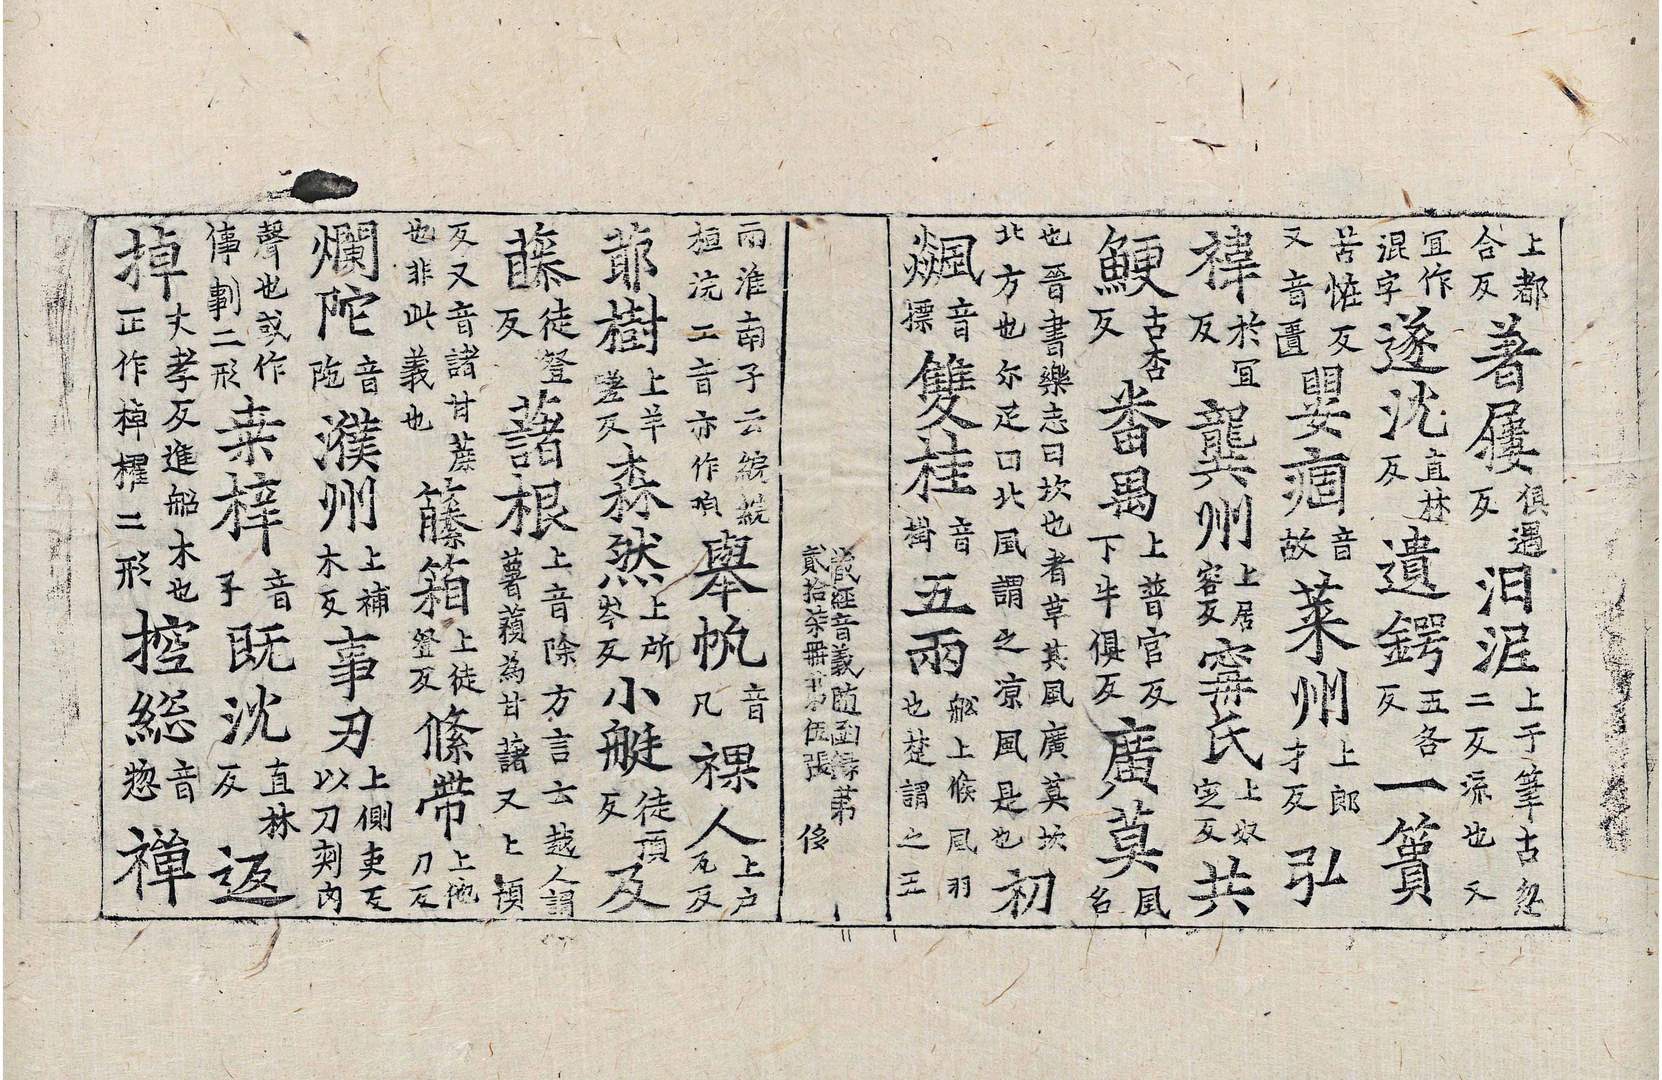 上都合反著屨俱遇反汨泥上于筆古忽二反流也又
宜作混字遂沈直林反遺鍔五各反一簣
苦恠反又音匱嬰痼音故萊州上郎才反弘
褘於宜反龔州上居容反甯氏上奴定反共
鯁古杏反番禺上普官反下牛俱反廣莫風名
也晉書樂志曰坎也者草其風廣莫坎北方也尔疋曰北風謂之凉風是也初
飈音摽雙桂音掛五兩舩上候風羽也楚謂之五
藏經音義随函録第貳拾柒冊 第伍張 侈
兩淮南子云綄桓浣二音亦作頂舉帆音凡裸人上户瓦反
爺樹上羊嗟反森然上所岑反小艇徒頂反及
藤徒登反藷根上音除方言云越人謂薯蕷為甘藷又上頏
反又音諸甘蔗也非此義也籐箱上徒登反絛帶上他刀反
爛陀音陁濮州上補木反事刃上側吏反以刀剌肉
聲也或作倳剚二形桒梓音子既沈直林反返
掉丈孝反進船木也正作棹櫂二形控緫音惣禪